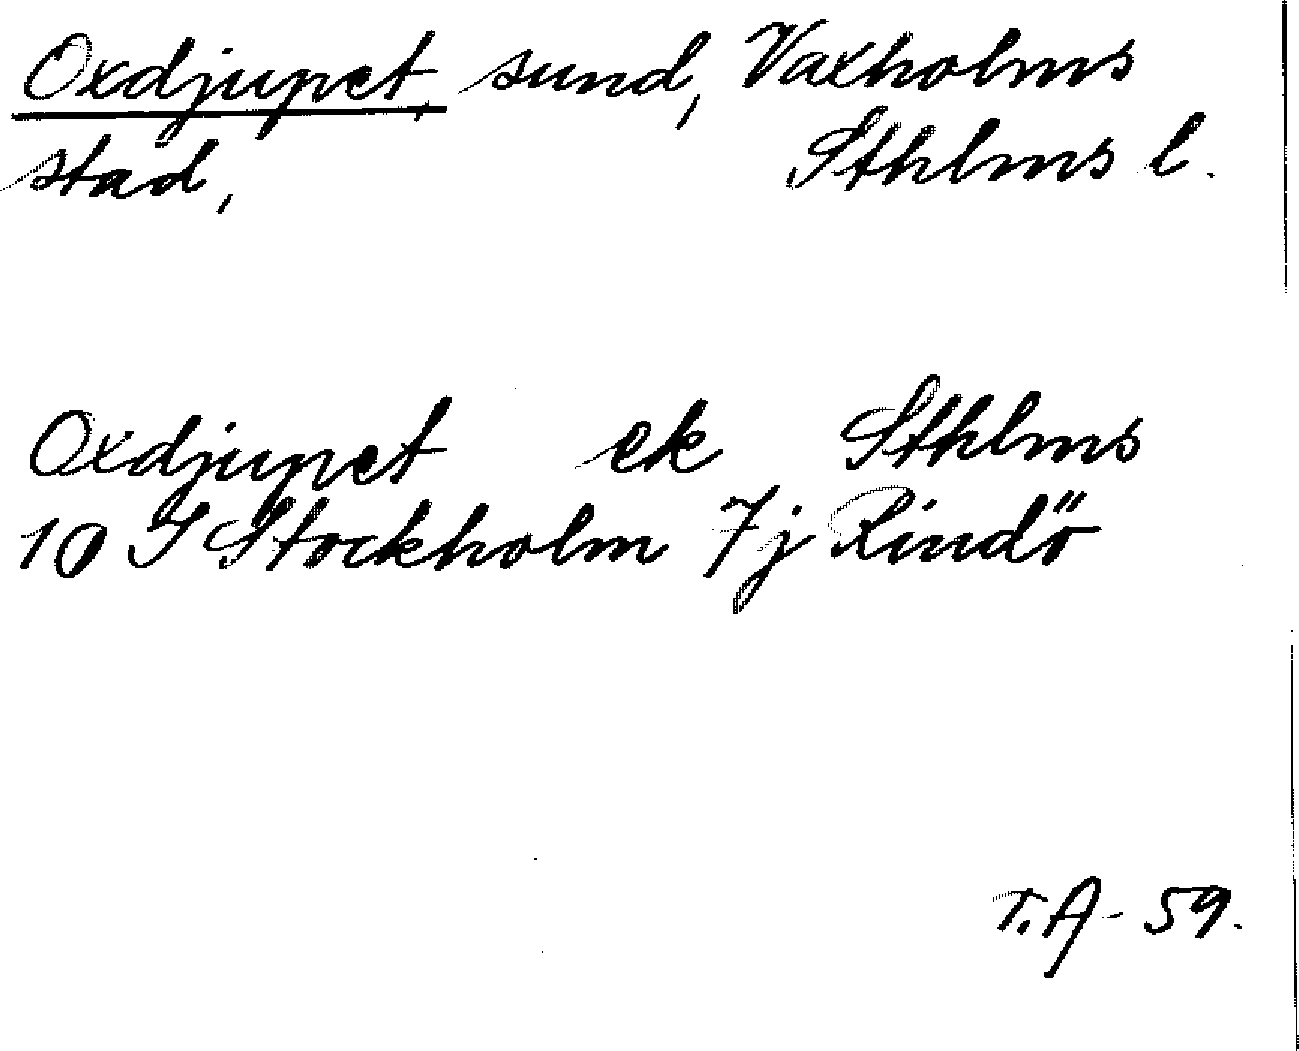 Oxdjupet, sund, Vaxholms
stad, Sthlms l.
Oxdjupet ek Sthlms
10 I Stockholm 7j Rindö
T.A- 59.